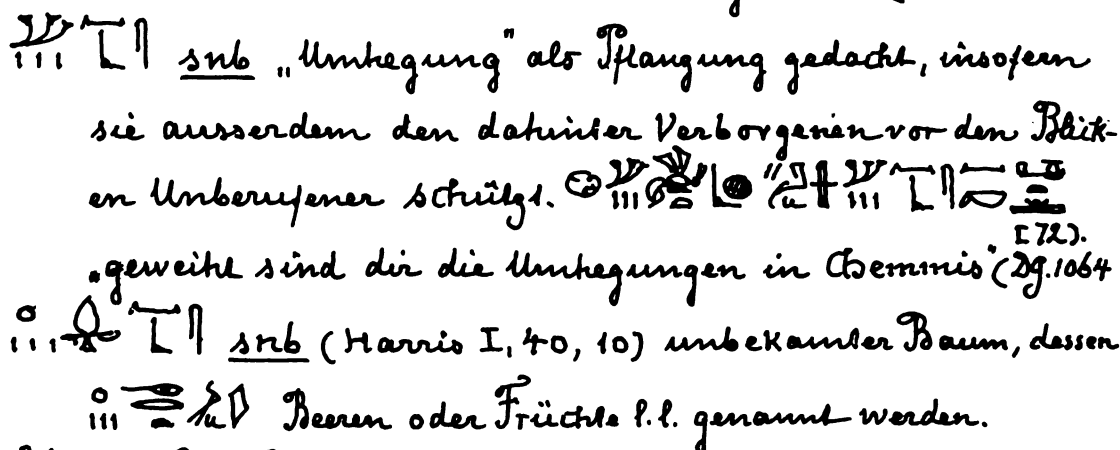 snb „Umhegung" als Pflanzung gedacht, insofern
sie ausserdem den dahinter Verborgenen vor den Blick-
en Unberufener schützt.
I 72).
„geweiht sind dir die Umhegungen in Chemmis" (Dg. 1064
snb (Harris I, 40, 10) unbekannter Baum, dessen
Beeren oder Früchte l.l. genannt werden.